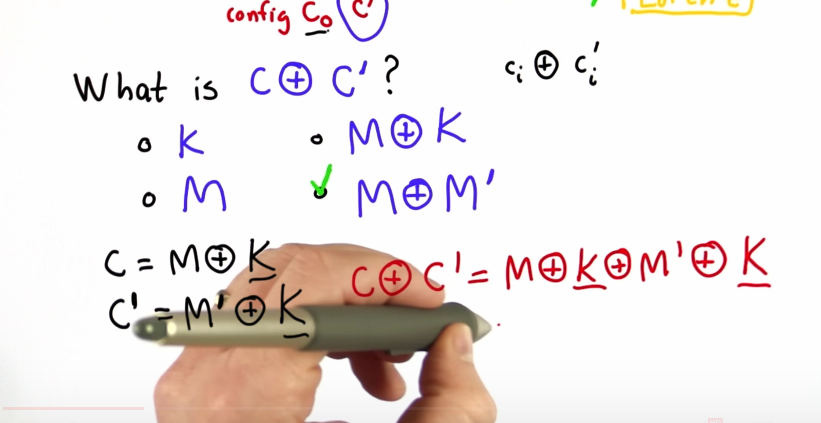 config C₀ C'
What is C ⊕ C' ?
cᵢ ⊕ cᵢ'
K
M ⊕ K
M
M ⊕ M'
C = M ⊕ K
C' = M' ⊕ K
C ⊕ C' = M ⊕ K ⊕ M' ⊕ K